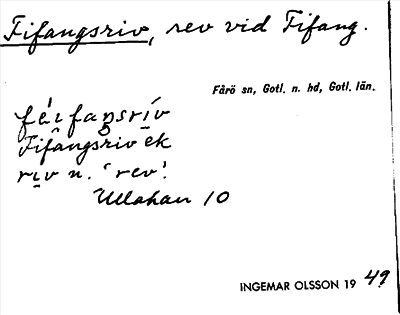 Fifangsriv, rev vid Fifang.
Fårö sn, Gotl. n. hd, Gotl. län.
féɪfaŋsrív
Fifångsriv ek
rɪv n. 'rev'.
Ullahau 10
INGEMAR OLSSON 19 49